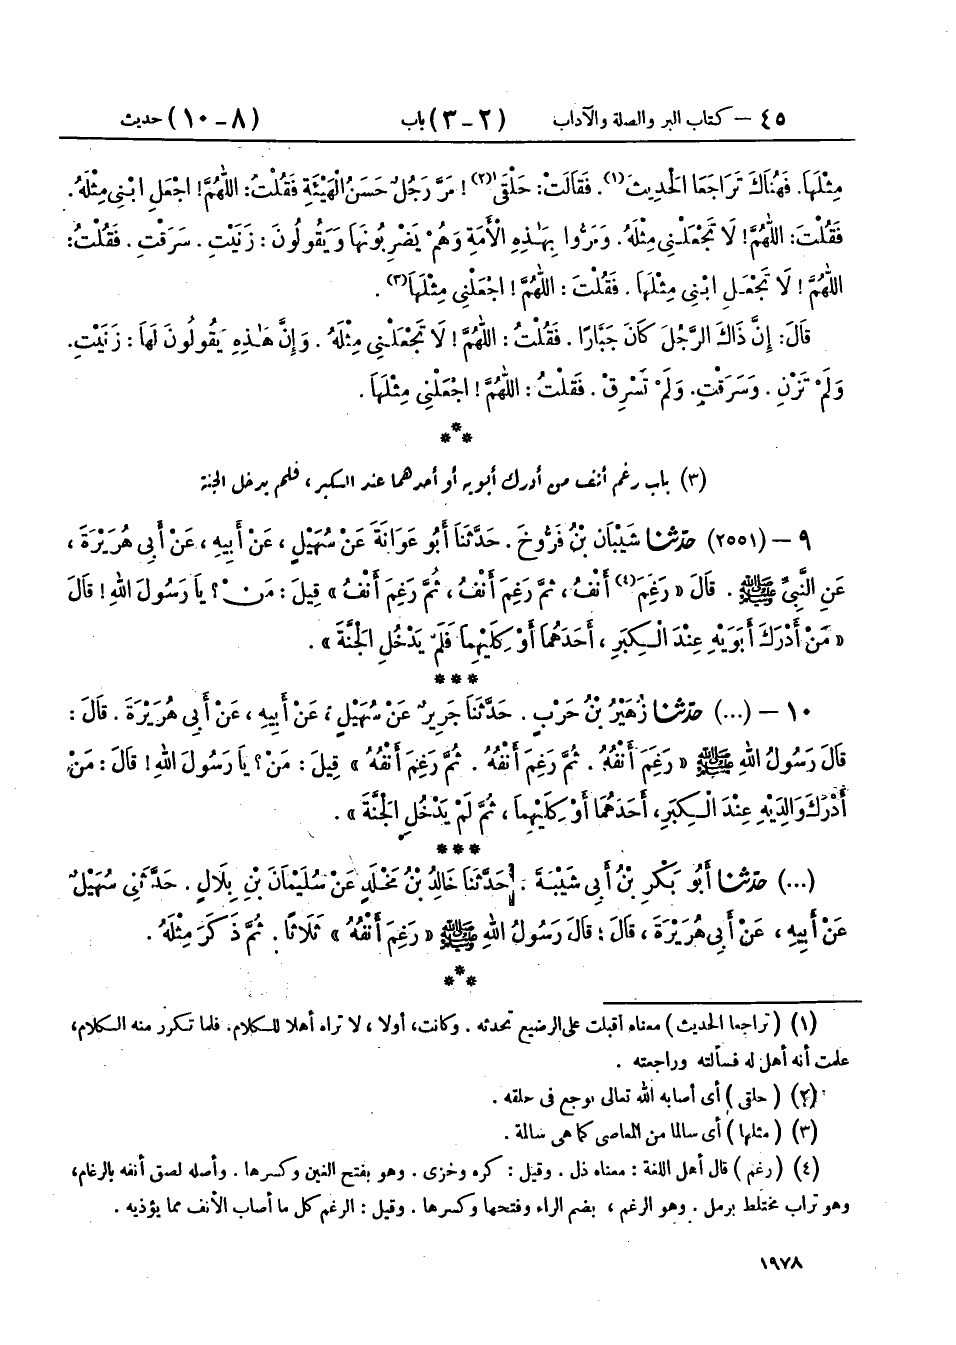 ٤٥ – كتاب البر والصلة والآداب (٢ - ٣) باب (٨ - ١٠) حديث
مِثْلَهَا. فَهُنَاكَ تَرَاجَعَا الْحَدِيثَ(١). فَقَالَتْ: حَلْقَى(٢)! مَرَّ رَجُلٌ حَسَنُ الْهَيْئَةِ فَقُلْتُ: اللَّهُمَّ! اجْعَلِ ابْنِي مِثْلَهُ.
فَقُلْتَ: اللَّهُمَّ! لَا تَجْعَلْنِي مِثْلَهُ. وَمَرُّوا بِهَذِهِ الْأَمَةِ وَهُمْ يَضْرِبُونَهَا وَيَقُولُونَ: زَنَيْتِ. سَرَقْتِ. فَقُلْتُ:
اللَّهُمَّ! لَا تَجْعَلِ ابْنِي مِثْلَهَا. فَقُلْتَ: اللَّهُمَّ! اجْعَلْنِي مِثْلَهَا(٣).
قَالَ: إِنَّ ذَاكَ الرَّجُلَ كَانَ جَبَّارًا. فَقُلْتُ: اللَّهُمَّ! لَا تَجْعَلْنِي مِثْلَهُ. وَإِنَّ هَذِهِ يَقُولُونَ لَهَا: زَنَيْتِ.
وَلَمْ تَزْنِ. وَسَرَقْتِ. وَلَمْ تَسْرِقْ. فَقُلْتُ: اللَّهُمَّ! اجْعَلْنِي مِثْلَهَا.
***
(٣) باب رغم أنف من أدرك أبويه أو أحدهما عند الكبر، فلم يدخل الجنة
٩ – (٢٥٥١) حَدَّثَنَا شَيْبَانُ بْنُ فَرُّوخَ. حَدَّثَنَا أَبُو عَوَانَةَ عَنْ سُهَيْلٍ، عَنْ أَبِيهِ، عَنْ أَبِي هُرَيْرَةَ،
عَنِ النَّبِيِّ ﷺ. قَالَ «رَغِمَ(٤) أَنْفُ، ثُمَّ رَغِمَ أَنْفُ، ثُمَّ رَغِمَ أَنْفُ» قِيلَ: مَنْ؟ يَا رَسُولَ اللهِ! قَالَ
«مَنْ أَدْرَكَ أَبَوَيْهِ عِنْدَ الْكِبَرِ، أَحَدَهُمَا أَوْ كِلَيْهِمَا فَلَمْ يَدْخُلِ الْجَنَّةَ».
***
١٠ – (...) حَدَّثَنَا زُهَيْرُ بْنُ حَرْبٍ. حَدَّثَنَا جَرِيرٌ عَنْ سُهَيْلٍ، عَنْ أَبِيهِ، عَنْ أَبِي هُرَيْرَةَ. قَالَ:
قَالَ رَسُولُ اللهِ ﷺ «رَغِمَ أَنْفُهُ. ثُمَّ رَغِمَ أَنْفُهُ. ثُمَّ رَغِمَ أَنْفُهُ» قِيلَ: مَنْ؟ يَا رَسُولَ اللهِ! قَالَ: مَنْ
أَدْرَكَ وَالِدَيْهِ عِنْدَ الْكِبَرِ، أَحَدَهُمَا أَوْ كِلَيْهِمَا، ثُمَّ لَمْ يَدْخُلِ الْجَنَّةَ».
***
(...) حَدَّثَنَا أَبُو بَكْرِ بْنُ أَبِي شَيْبَةَ. حَدَّثَنَا خَالِدُ بْنُ مَخْلَدٍ عَنْ سُلَيْمَانَ بْنِ بِلَالٍ. حَدَّثَنِي سُهَيْلٌ
عَنْ أَبِيهِ، عَنْ أَبِي هُرَيْرَةَ، قَالَ: قَالَ رَسُولُ اللهِ ﷺ «رَغِمَ أَنْفُهُ» ثَلَاثًا. ثُمَّ ذَكَرَ مِثْلَهُ.
***
(١) (تراجعا الحديث) معناه أقبلت على الرضيع تحدثه. وكانت، أولا، لا تراه أهلا للكلام. فلما تكرر منه الكلام،
علمت أنه أهل له فسألته وراجعته.
(٢) (حلقى) أى أصابه الله تعالى بوجع فى حلقه.
(٣) (مثلها) أى سالما من المعاصى كما هى سالمة.
(٤) (رغم) قال أهل اللغة: معناه ذل. وقيل: كره وخزى. وهو بفتح الغين وكسرها. وأصله لصق أنفه بالرغام،
وهو تراب مختلط برمل. وهو الرغم، بضم الراء وفتحها وكسرها. وقيل: الرغم كل ما أصاب الأنف مما يؤذيه.
١٩٧٨